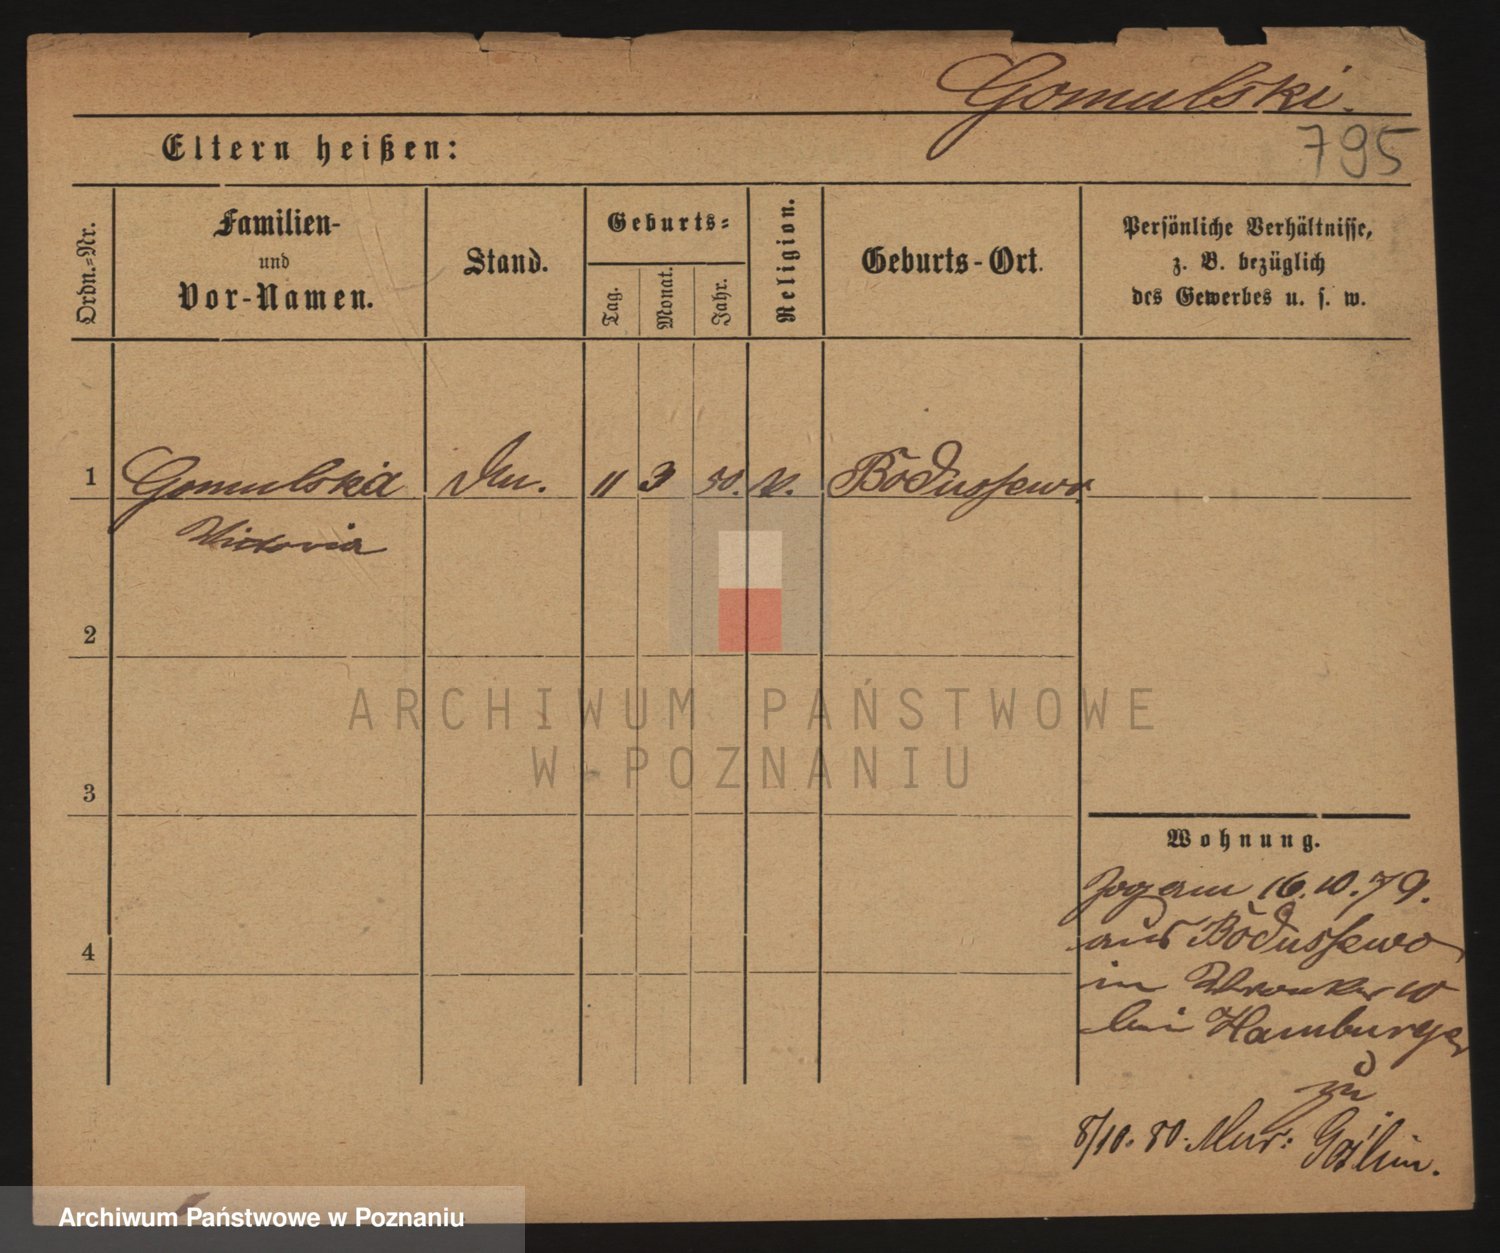 Gomulski.
795
Eltern heißen:
Ordn.-Nr.
Familien-
und
Vor-Namen.
Stand.
Geburts-
Tag.
Monat.
Jahr.
Religion.
Geburts-Ort.
Persönliche Verhältnisse,
z. B. bezüglich
des Gewerbes u. s. w.
1 Gomulska 11 3 50. K. Bodussewo
Victoria
2
3
4
Wohnung.
Zog am 16.10.79.
aus Bodussewo
in Wronker 10
bei Hamburger
zu
8/10. 80. Mur: Goslin.
ARCHIWUM PAŃSTWOWE
W POZNANIU
Archiwum Państwowe w Poznaniu